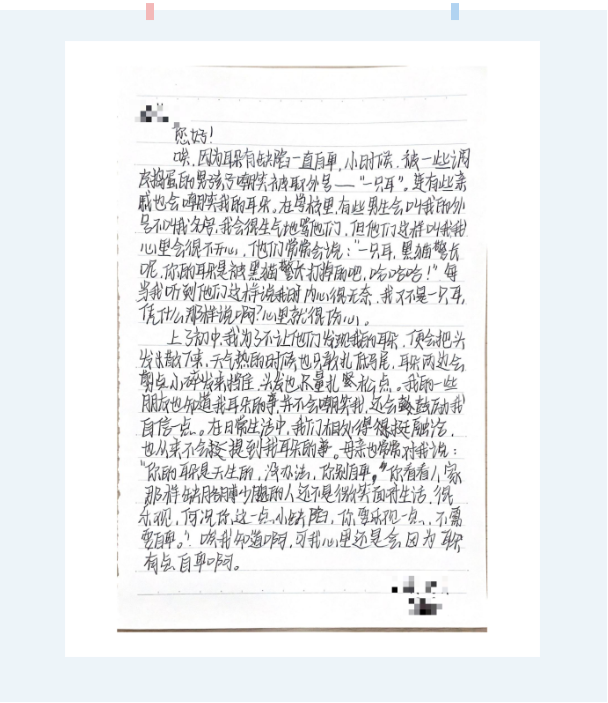 您好！
唉，因为耳朵有缺陷一直自卑，小时候，被一些调
皮捣蛋的男孩子嘲笑被取外号——“一只耳”。连有些亲
戚也会嘲笑我的耳朵。在学校里，有些男生会叫我的外
号不叫我名字，我会很生气地骂他们，但他们这样叫我我
心里会很不开心，他们常常会说：“一只耳，黑猫警长
呢，你的耳朵是被黑猫警长打掉的吧，哈哈哈！”每
当我听到他们这样说我时内心很无奈，我又不是一只耳，
凭什么那样说啊？心里就很伤心。
上了初中，我为了不让他们发现我的耳朵，便会把头
发散下来，天气热的时候也只敢扎低马尾，耳朵两边会
剪点小碎发来挡住，头发也尽量扎紧松点。我的一些
朋友也知道我耳朵的事，并不会嘲笑我，还会鼓励我
自信一点。在日常生活中，我们相处得挺融洽，
也从来不会提到我耳朵的事。母亲也常常对我说：
“你的耳朵是天生的，没办法，你别自卑。”“你看看人家
那样缺胳膊少腿的人还不是微笑面对生活，很
乐观，何况你这一点小缺陷，你要乐观一点，不需
要自卑。”唉我知道啊，可我心里还是会因为耳朵
有点自卑啊。